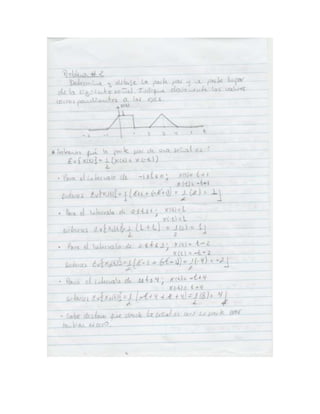 Problema # 2
Determine y dibuje la parte par y la parte impar
de la siguiente señal. Indique claramente los valores
correspondientes a los ejes.
x(t)
-2 -1 1 2 3 4 5
* Sabemos que la parte par de una señal es:
Ev{x(t)} = 1/2 (x(t) + x(-t))
• Para el intervalo de -1≤t≤0; x(t) = t+1
x(-t) = -t+1
entonces Ev{x(t)} = 1/2
• Para el intervalo de 0≤t≤1; x(t)=1
entonces Ev{x(t)} = 1/2 (1+1) = 1/2 (2) = 1
• Para el intervalo de 2≤t≤3; x(t) = t-2
x(-t) = -t-2
entonces Ev{x(t)} = 1/2
• Para el intervalo de 3≤t≤4; x(t) = -t+4
x(-t) = t+4
entonces Ev{x(t)} = 1/2
• Cabe destacar que donde la señal es cero su parte par
también es cero.